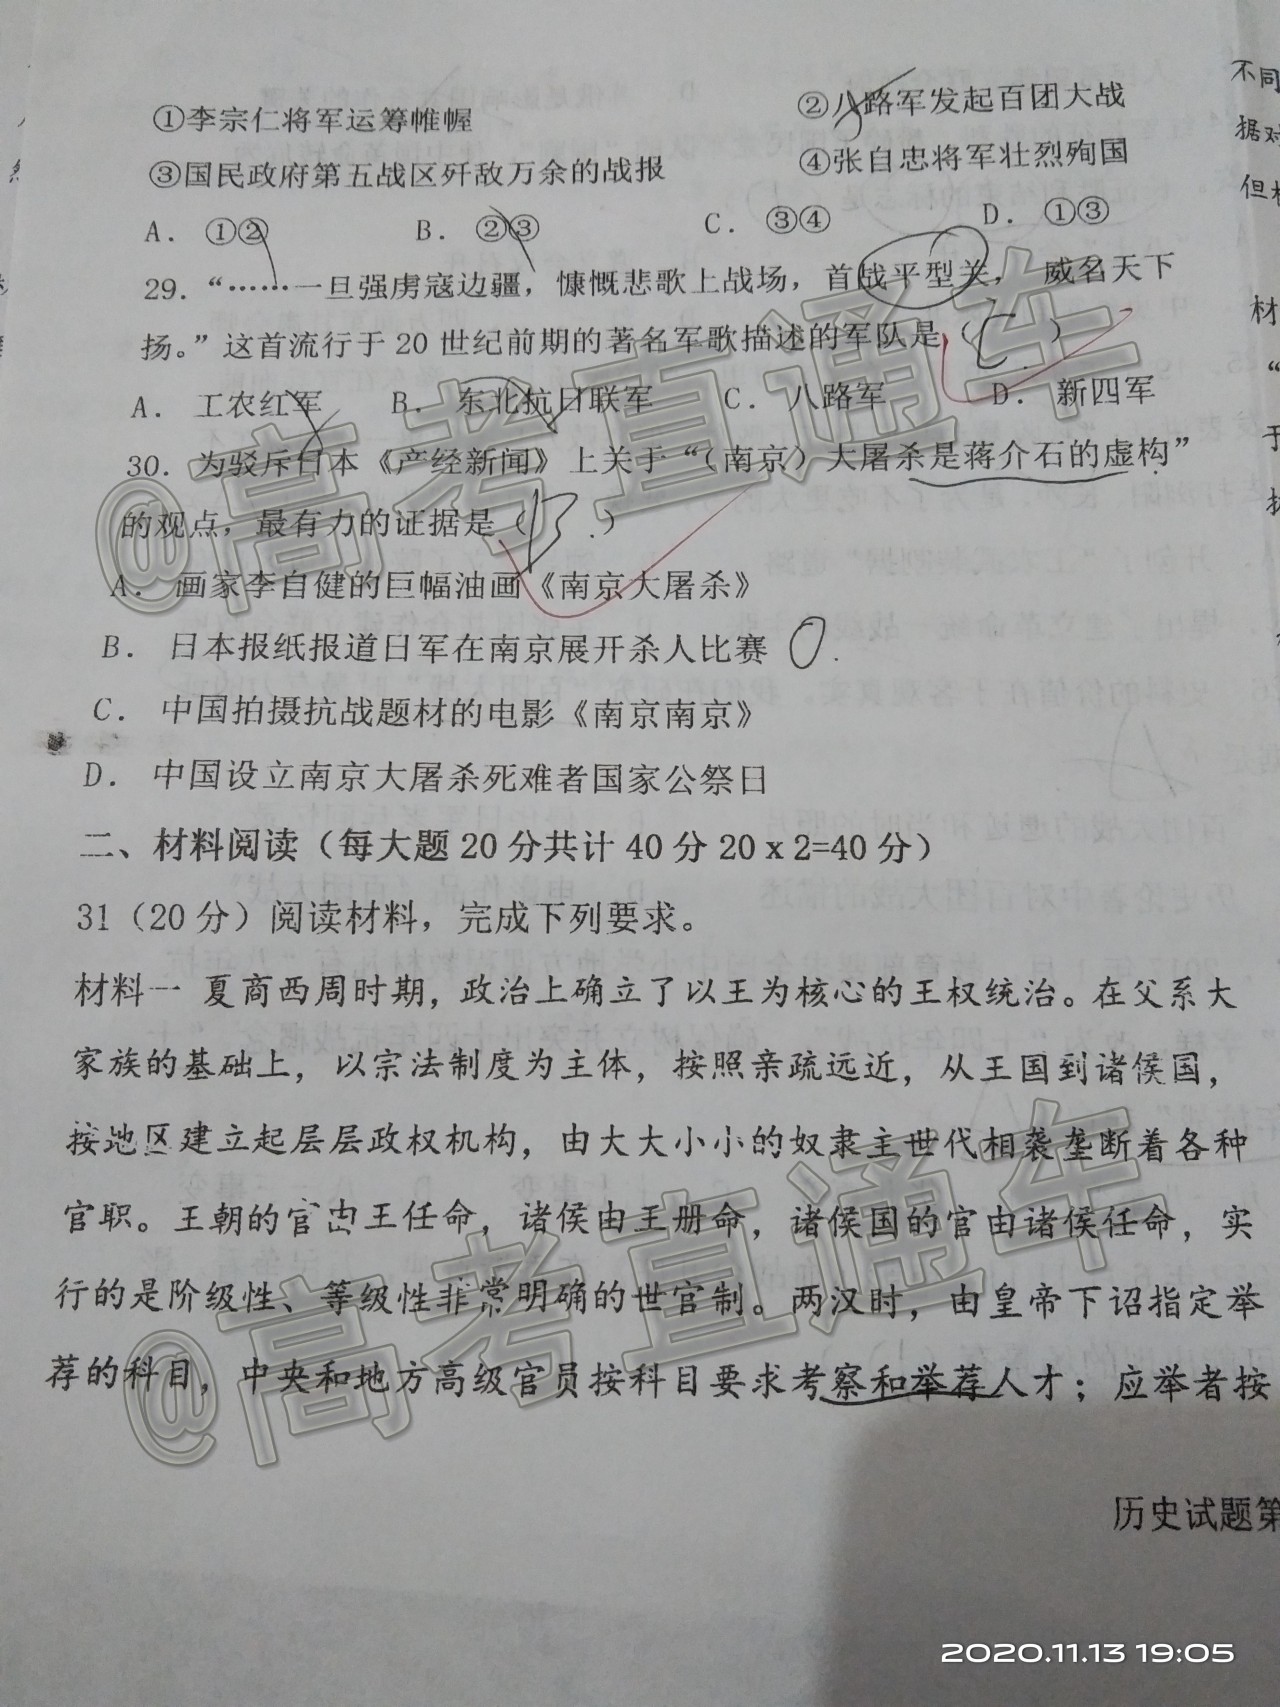 ①李宗仁将军运筹帷幄 ②八路军发起百团大战
③国民政府第五战区歼敌万余的战报 ④张自忠将军壮烈殉国
A. ①② B. ②③ C. ③④ D. ①③
29.“……一旦强虏寇边疆，慷慨悲歌上战场，首战平型关， 威名天下
扬。”这首流行于 20 世纪前期的著名军歌描述的军队是（C.）
A. 工农红军 B. 东北抗日联军 C. 八路军 D. 新四军
30. 为驳斥日本《产经新闻》上关于“（南京）大屠杀是蒋介石的虚构”
的观点，最有力的证据是（B.）
A. 画家李自健的巨幅油画《南京大屠杀》
B. 日本报纸报道日军在南京展开杀人比赛
C. 中国拍摄抗战题材的电影《南京南京》
D. 中国设立南京大屠杀死难者国家公祭日
二、材料阅读（每大题 20 分共计 40 分 20 x 2=40 分）
31（20 分）阅读材料，完成下列要求。
材料一 夏商西周时期，政治上确立了以王为核心的王权统治。在父系大
家族的基础上，以宗法制度为主体，按照亲疏远近，从王国到诸侯国，
按地区建立起层层政权机构，由大大小小的奴隶主世代相袭垄断着各种
官职。王朝的官由王任命，诸侯由王册命，诸侯国的官由诸侯任命，实
行的是阶级性、等级性非常明确的世官制。两汉时，由皇帝下诏指定举
荐的科目，中央和地方高级官员按科目要求考察和举荐人才；应举者按
历史试题第
不同
据对
但
材
“
于
@高考直通车
@高考直通车
2020.11.13 19:05